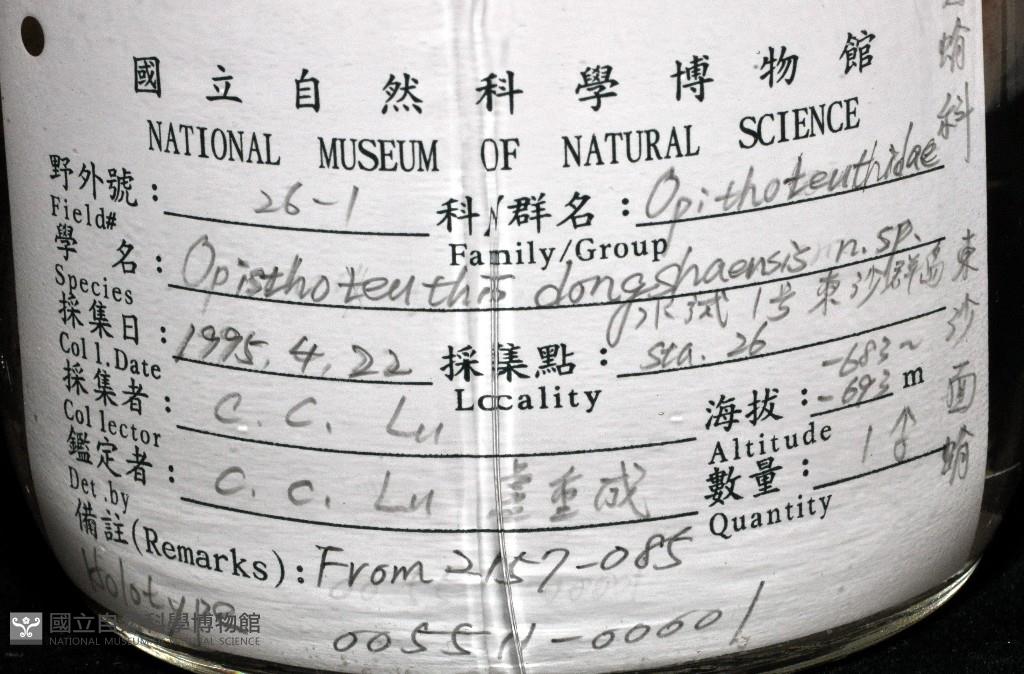 國立自然科學博物館
NATIONAL MUSEUM OF NATURAL SCIENCE
野外號： 26-1 科/群名： Opithoteuthidae
Field# Family/Group
學 名： Opisthoteuthis dongshaensis n.sp.
Species
水試1号 東沙群島
採集日： 1995.4.22 採集點： sta. 26
Coll.Date Locality
採集者： C. C. Lu 海拔： -683~-693 m
Collector Altitude
鑑定者： C. C. Lu 盧重成 數量： 1
Det.by Quantity
備註(Remarks): From 2157-085
Holotype
005511-00001
蛸科
東沙面蛸
國立自然科學博物館
NATIONAL MUSEUM OF NATURAL SCIENCE